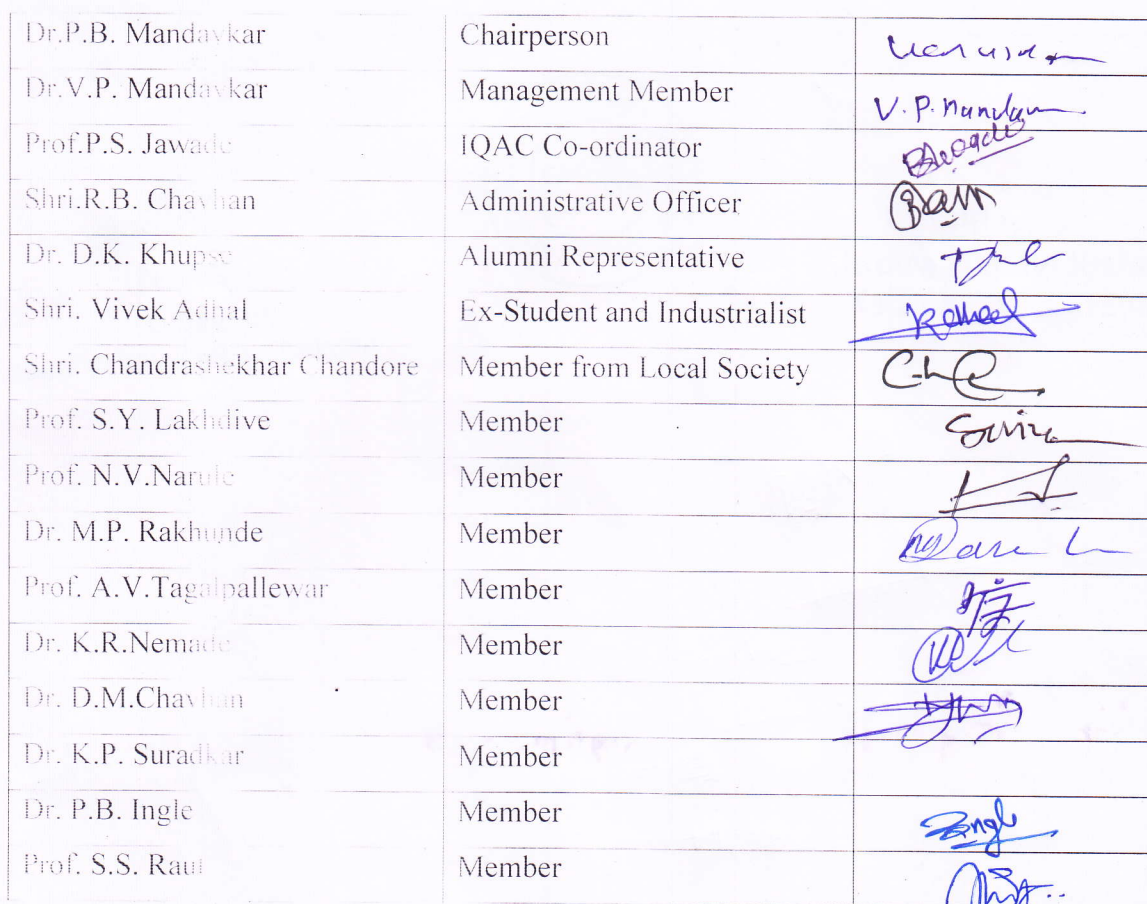 Dr.P.B. Mandavkar Chairperson
Dr.V.P. Mandavkar Management Member V.P.
Prof.P.S. Jawade IQAC Co-ordinator
Shri.R.B. Chavhan Administrative Officer
Dr. D.K. Khupse Alumni Representative
Shri. Vivek Adhal Ex-Student and Industrialist
Shri. Chandrashekhar Chandore Member from Local Society
Prof. S.Y. Lakhdive Member
Prof. N.V.Narule Member
Dr. M.P. Rakhunde Member
Prof. A.V.Tagalpallewar Member
Dr. K.R.Nemade Member
Dr. D.M.Chavhan Member
Dr. K.P. Suradkar Member
Dr. P.B. Ingle Member
Prof. S.S. Raut Member